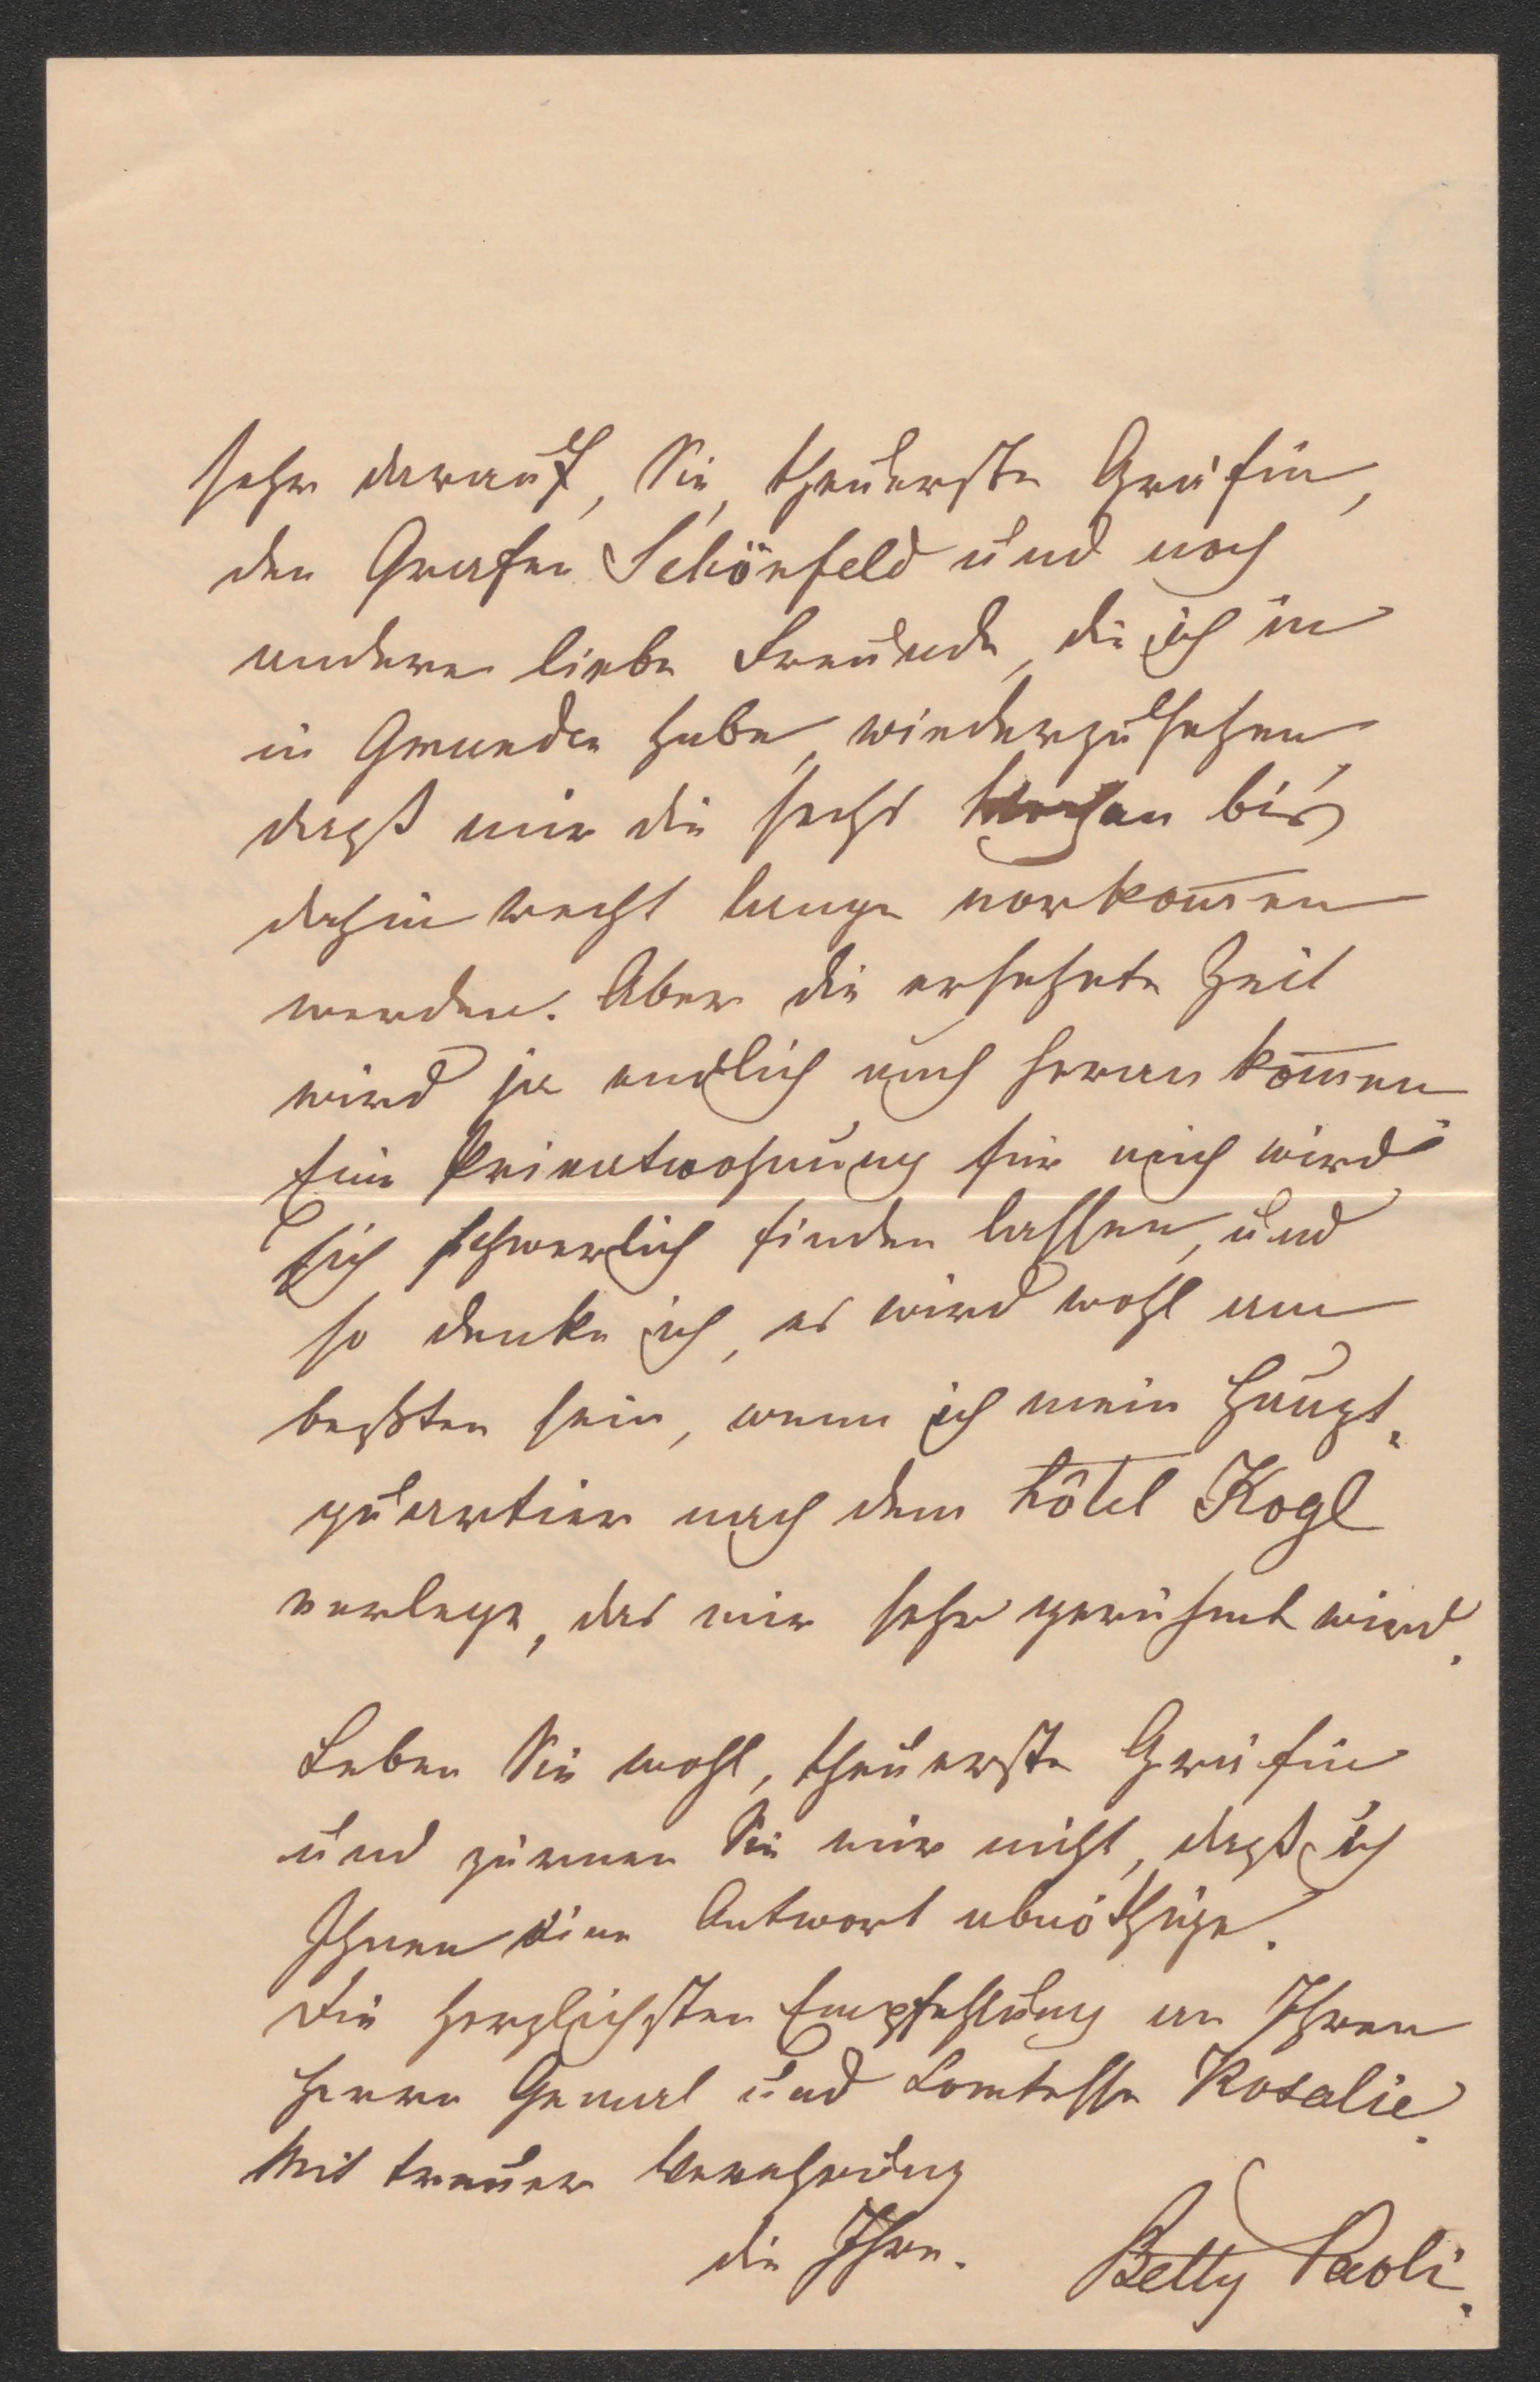 sehr darauf, Sie, theuerste Gräfin,
den Grafen Schönfeld und noch
andere liebe Freunde, die ich in
in Gmunden habe, wiederzusehen,
daß mir die sechs Wochen bis
dahin recht lange vorkom̅en
werden. Aber die ersehnte Zeit
wird ja endlich auch heran kom̅en.
Eine Privatwohnung für mich wird
sich schwerlich finden lassen, und
so denke ich, es wird wohl am
beßten sein, wenn ich mein Haupt-
quartier nach dem hôtel Kogl
verlege, das mir sehr gerühmt wird.
Leben Sie wohl, theuerste Gräfin
und zürnen Sie mir nicht, daß ich
Ihnen eine Antwort abnöthige.
Die herzlichsten Empfehlung an Ihren
Herrn Gemal und Comtesse Rosalie.
Mit treuer Verehrung
die Ihre. Betty Paoli.